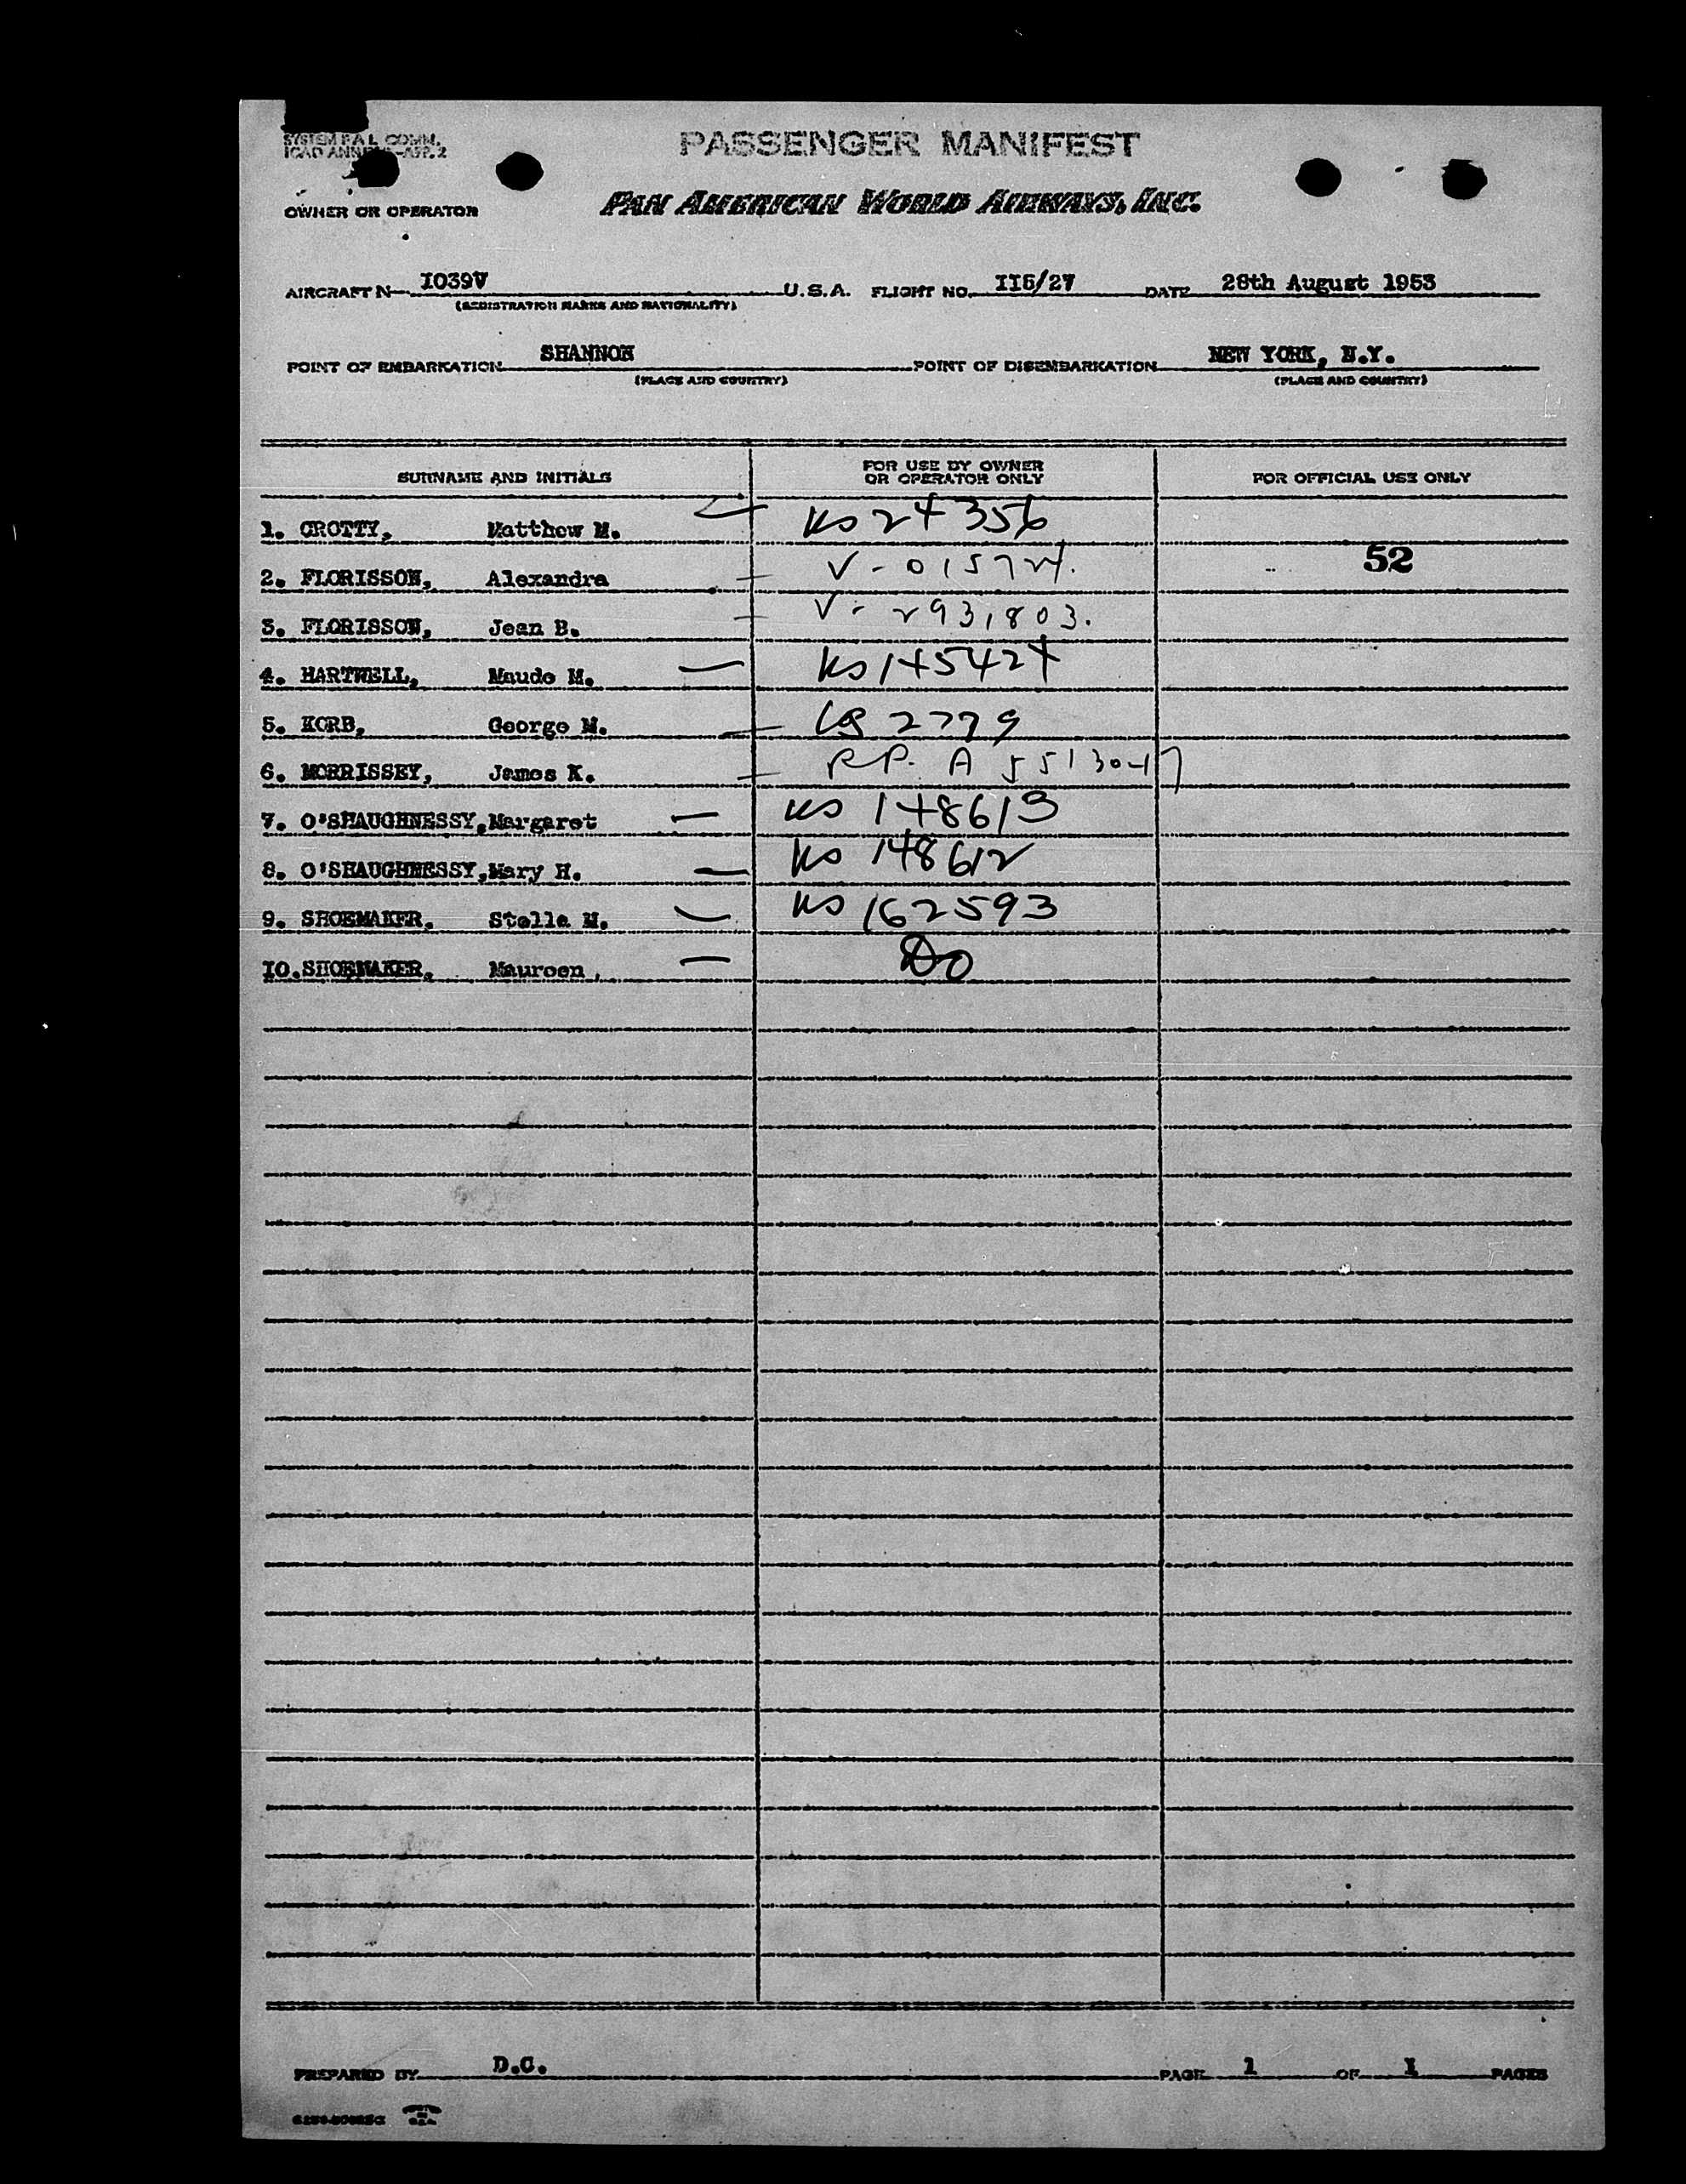 PASSENGER MANIFEST
OWNER OR OPERATOR
PAN AMERICAN WORLD AIRWAYS, INC.
AIRCRAFT N 1039V U.S.A. FLIGHT NO. II6/27 DATE 28th August 1953
(REGISTRATION MARKS AND NATIONALITY)
POINT OF EMBARKATION SHANNON POINT OF DISEMBARKATION NEW YORK, N.Y.
(PLACE AND COUNTRY) (PLACE AND COUNTRY)
SURNAME AND INITIALS FOR USE BY OWNER OR OPERATOR ONLY FOR OFFICIAL USE ONLY
1. CROTTY, Matthew M. 24356
2. FLORISSON, Alexandra V-015724. 52
3. FLORISSON, Jean B. V- 293,803.
4. HARTWELL, Maude M. 145424
5. KORB, George M. 2779
6. MORRISSEY, James K. R.P. A
7. O'SHAUGHNESSY, Margaret 148613
8. O'SHAUGHNESSY, Mary H. 148612
9. SHOEMAKER, Stella M. 162593
IO. SHOEMAKER, Maureen Do
PREPARED BY D.C. PAGE 1 OF 1 PAGES